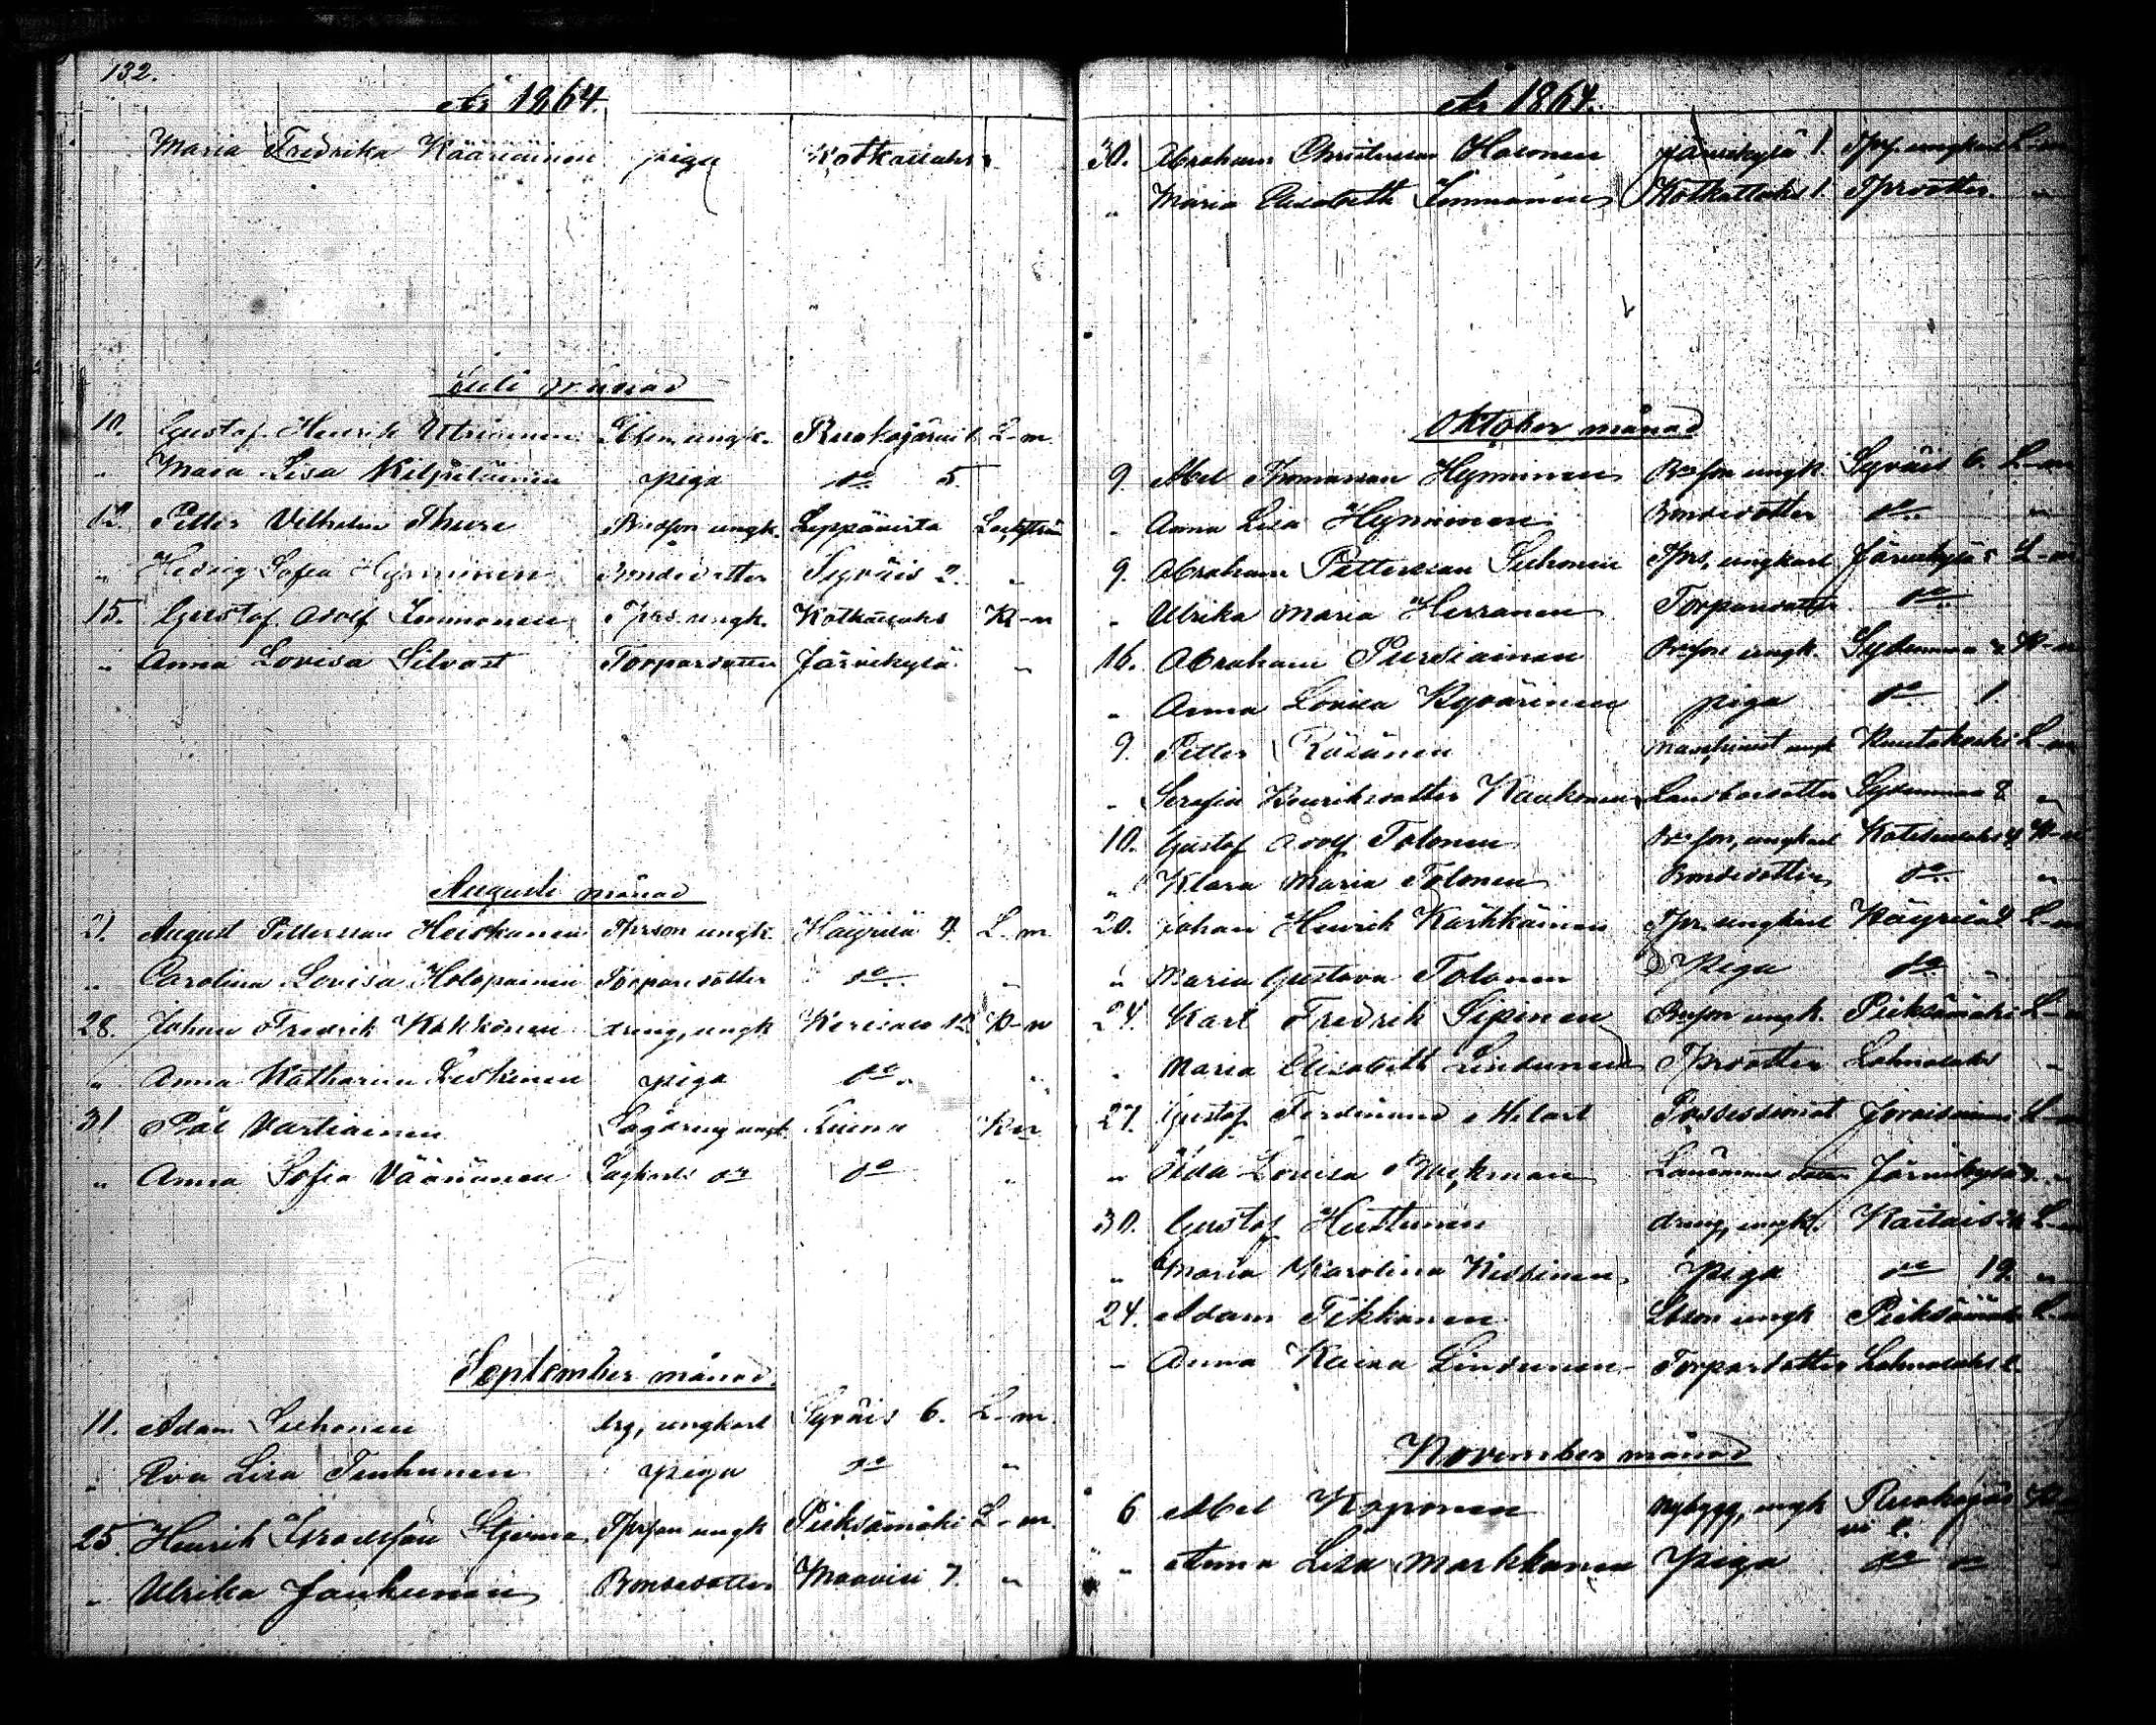 132.
År 1864.
Maria Fredrika Kääriäinen piga Kotkatlahti
Juli månad
10. Gustaf Henrik Utriainen ungk. Ruokojärvi L-m
" Maria Lisa piga do 5.
12. Petter Vilhelm Thure Bdeson ungk. Leppävirta
" Hedvig Sofia Hynninen Bondedotter Syväis 2. "
15. Gustaf Adolf Immonen ungk. Kotkatlahti K-n
" Anna Lovisa Silvast Torpardotter Järvikylä "
Augusti månad
21. August Pettersson Heiskanen Tprson ungk. Häyrilä 4. L-m
" Carolina Lovisa Holopainen Torparedotter do "
28. Johan Fredrik Kokkonen dreng, ungk 12 K-n
" Anna Katharina Leskinen piga do "
31 Pål Vartiainen Sågdreng ungk. K-n
" Anna Sofia Väänänen do "
September månad.
11. Adam Suhonen drg, ungkarl Syväis 6. L-m.
" Eva Lisa Tenhunen piga do "
25. Henrik Stjerna Tprson ungk Pieksämäki L-m.
" Ulrika Janhunen Bondedotter Maavesi 7. "
År 1864.
30. Abraham Christersson Halonen Järvikylä 1. ungkarl L-m
" Maria Elisabeth Immonen Kotkatlahti 1. Tprdotter "
Oktober månad
9. Abel Thomasson Hynninen Bdeson ungk. Syväis 6. L-m
" Anna Lisa Hynninen Bondedotter do "
9. Abraham Pettersson Suhonen Tprs, ungkarl Järvikylä 5 L-m
" Ulrika Maria Herranen Torpardotter do
16. Abraham Pursiainen Bdeson ungk. Sydänmaa 2 K-n
" Anna Lovisa Kyvärinen piga do 1.
9. Petter Räsänen Maschinist ungk Huutokoski L-m
" Serafia Henriksdotter Kaukonen Landbodotter Sydänmaa 8 "
10. Gustaf Adolf Tolonen Bdeson, ungkarl 4 K-n
" Klara Maria Tolonen Bondedotter do "
20. Johan Henrik Karhkäinen Tpr. ungkarl Häyrilä 4 L-m
" Maria Gustava Tolonen Piga do "
24. Karl Fredrik Sipinen Bdeson ungk. Pieksämäki L-m
" Maria Elisabeth Lindunen Tprdotter Lahnalahti "
27. Gustaf Ferdinand Possessionat Joroisniemi L-m
" Ida Lovisa Järvikylä "
30. Gustaf Huttunen dreng, ungk. Kaitais L-m
" Maria Karolina Kissinen piga do 19. "
24. Adam Tikkanen Lbson ungk Pieksämäki L-m
" Anna Kaisa Lindunen Torpardotter Lahnalahti 2.
November månad
6 Abel Koponen nybygg, ungk Ruokojär
vi 2.
" Anna Lisa Markkanen Piga do "